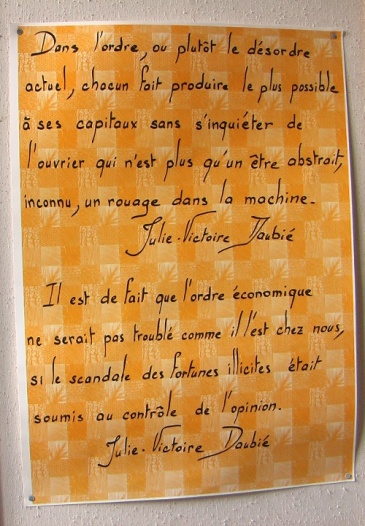 Dans l'ordre, ou plutôt le désordre
actuel, chacun fait produire le plus possible
à ses capitaux sans s'inquiéter de
l'ouvrier qui n'est plus qu'un être abstrait,
inconnu, un rouage dans la machine.
Julie-Victoire Daubié
Il est de fait que l'ordre économique
ne serait pas troublé comme il l'est chez nous,
si le scandale des fortunes illicites était
soumis au contrôle de l'opinion.
Julie-Victoire Daubié